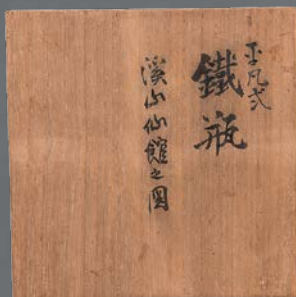 平凡式
鐵瓶
溪山仙館之圖